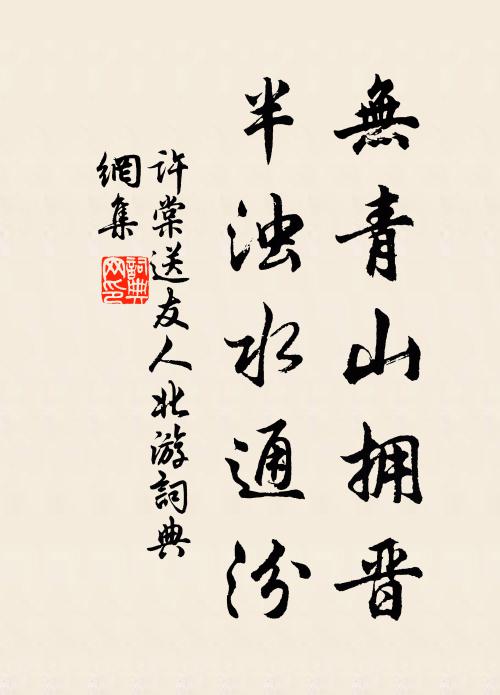 無青山拥晋
半浊水通汾
许棠送友人北游詞典
網集
詞典
网印